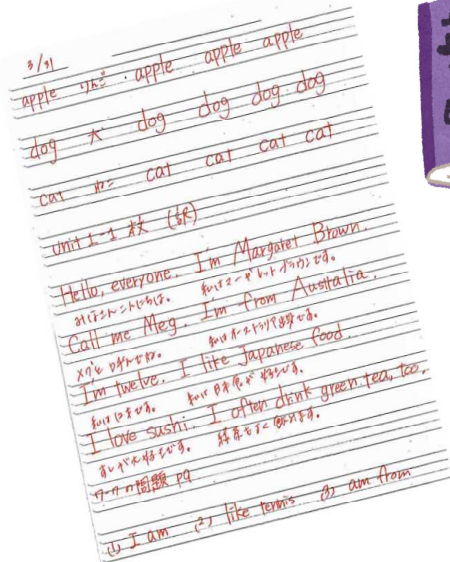 3/31
apple りんご apple apple apple
dog 犬 dog dog dog dog
cat ねこ cat cat cat cat
Unit 1-1 本文 (訳)
Hello, everyone. I'm Margaret Brown.
みなさんこんにちは。 私はマーガレットブラウンです。
Call me Meg. I'm from Australia.
メグと呼んでね。 私はオーストラリア出身です。
I'm twelve. I like Japanese food.
私は12才です。 私は日本食が好きです。
I love sushi. I often drink green tea, too.
すしが大好きです。 緑茶もよく飲みます。
ワークの問題 P9
(1) I am (2) like tennis (3) am from